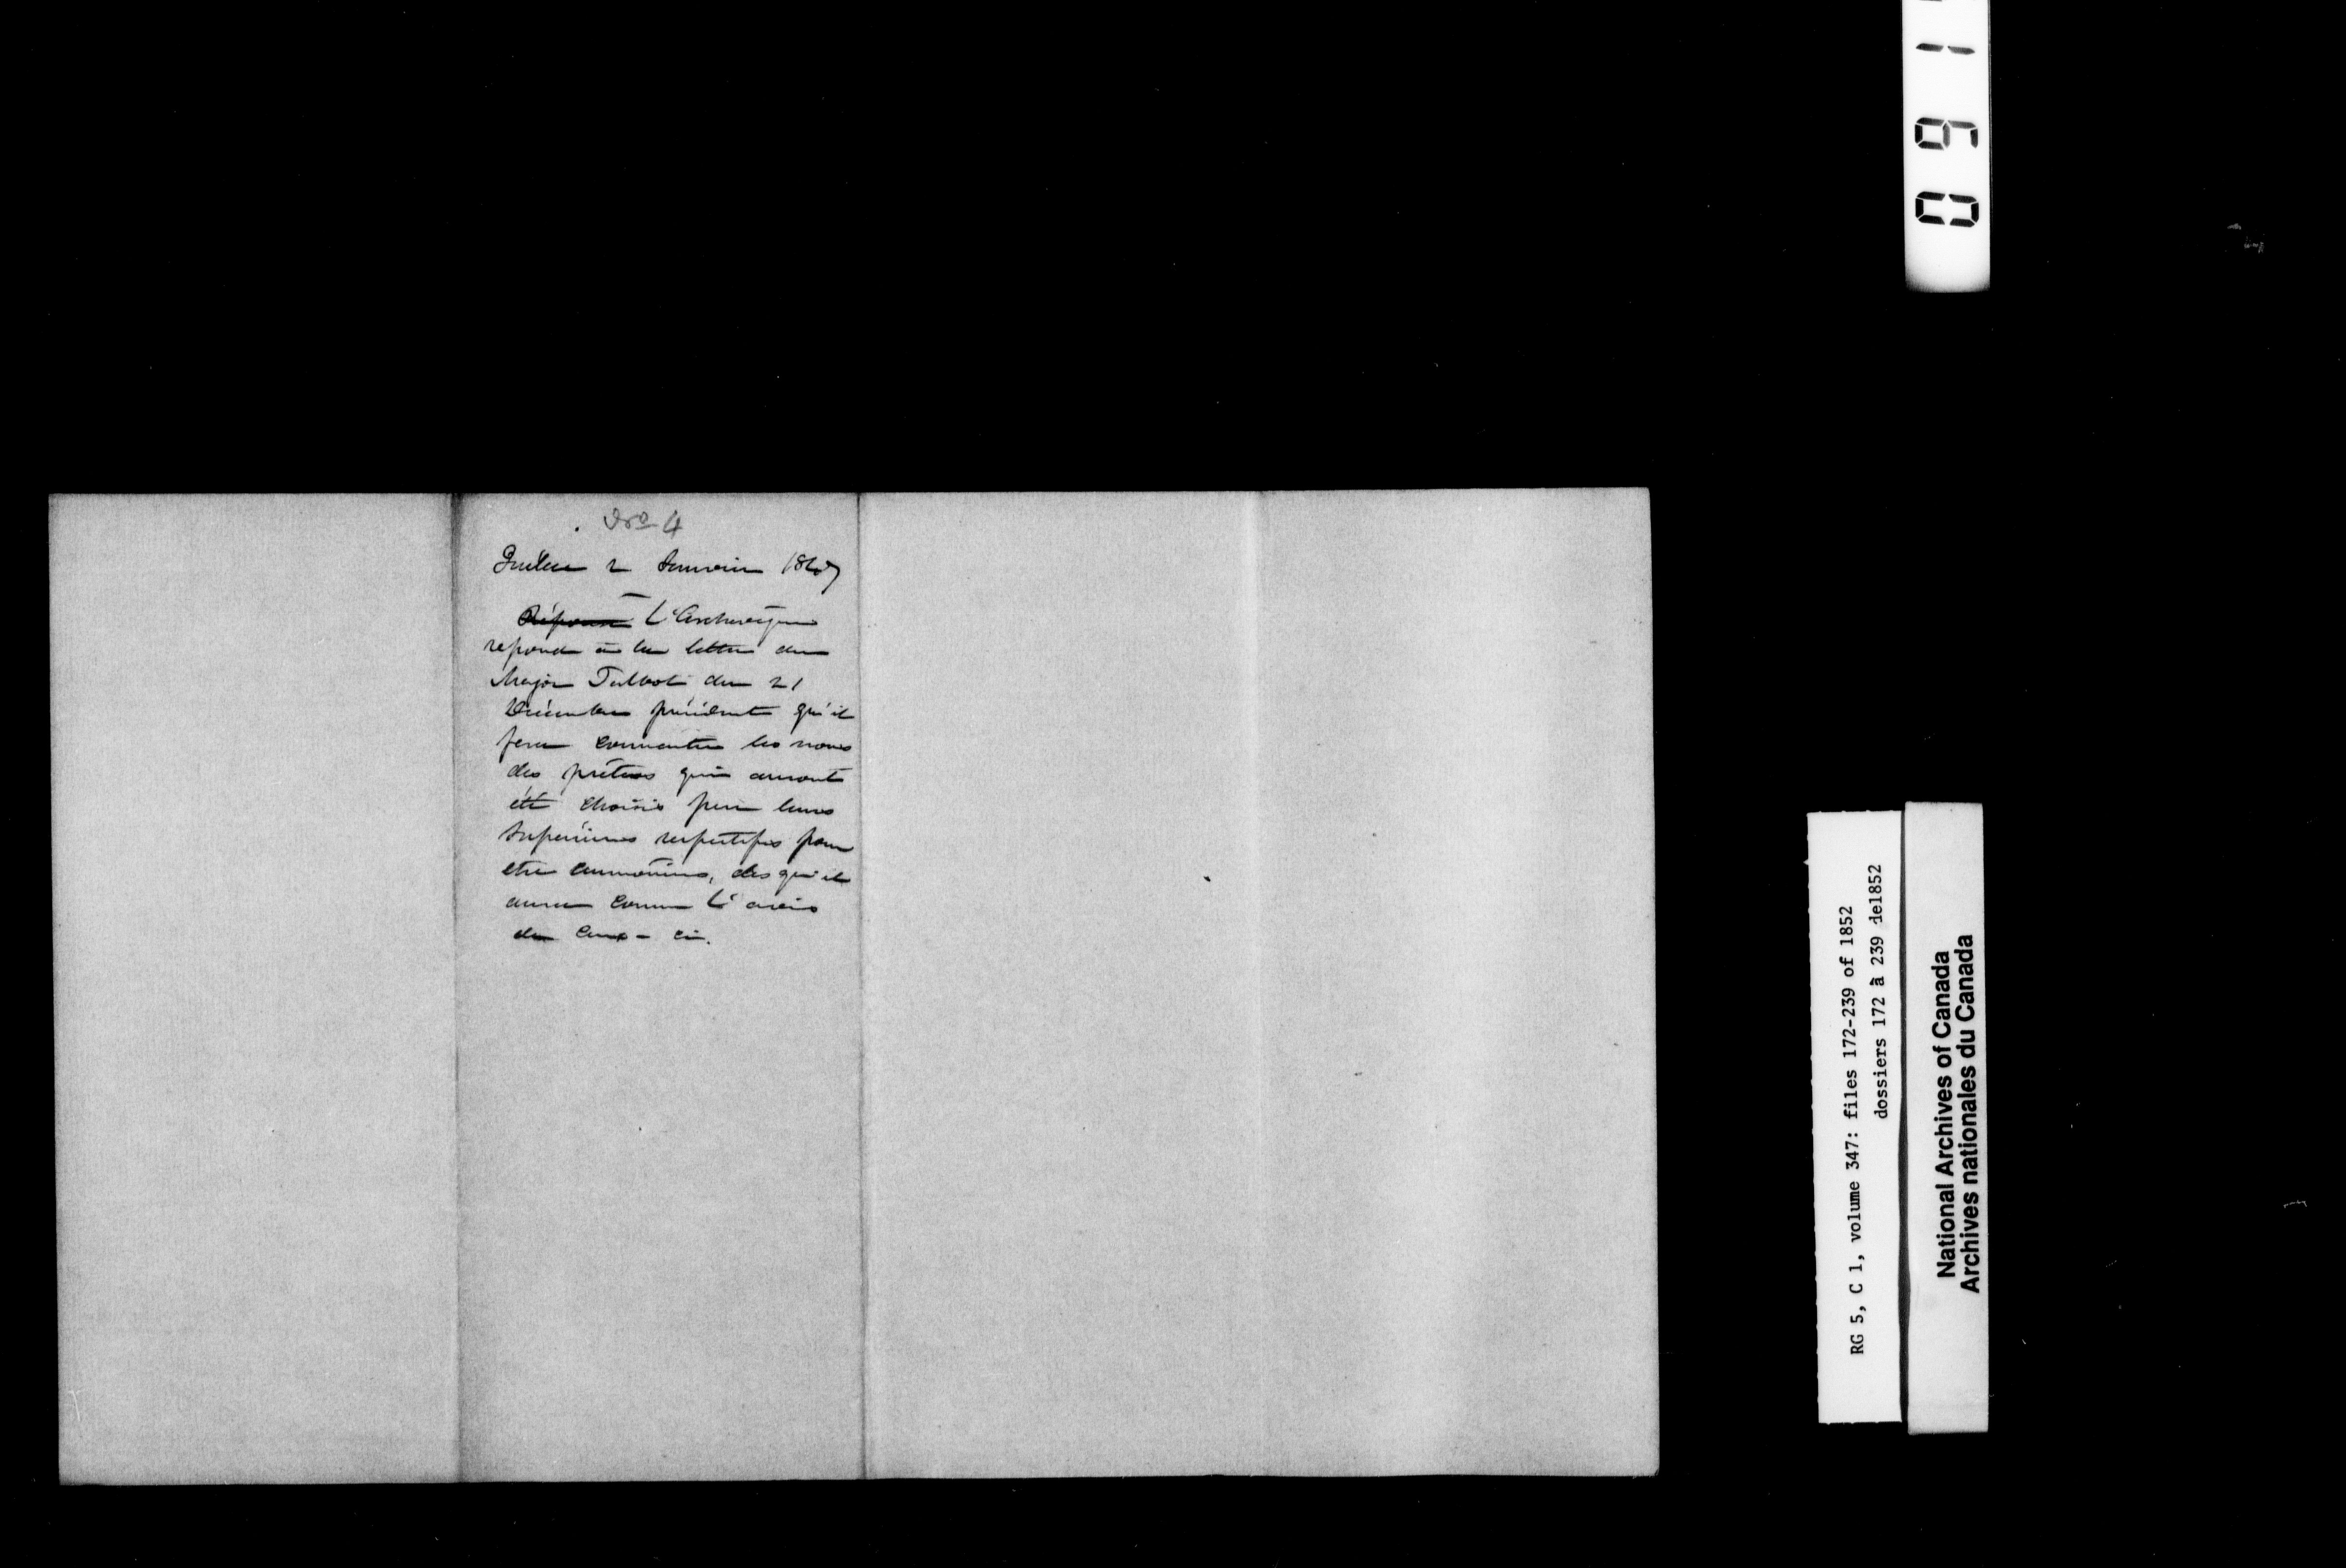 No 4
Québec 2 Janvier 1847
Réponse L'Archevêque
repond à la lettre du
Major Talbot du 21
Décembre précédent qu'il
fera connaitre les noms
des prêtres qui auront
été choisis par leurs
Supérieurs respectifs pour
etre aumôniers, des qu'il
aura connu l'avis
de ceux-ci.
091
RG 5, C 1, volume 347: files 172-239 of 1852
dossiers 172 à 239 de1852
National Archives of Canada
Archives nationales du Canada